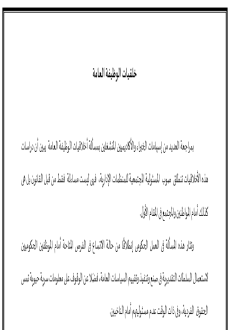 خلفيات الوظيفة العامة
بمراجعة العديد من إسهامات الخبراء والأكاديميين المشتغلين بمسألة أخلاقيات الوظيفة العامة يبين أن دراسات
هذه الأخلاقيات تنطلق صوب المسئولية المجتمعية للمنظمات الإدارية، فهي ليست مساءلة فقط من قبل القانون بل هي
كذلك أمام المواطنين والمجتمع في المقام الأول.
وتثار هذه المسألة في العمل الحكومي إنطلاقا من حالة الاتساع في الفرص المتاحة أمام الموظفين الحكوميين
لاستعمال السلطات التقديرية في صنع وتنفيذ وتقييم السياسات العامة، فضلا عن الوقوف على معلومات سرية حيوية تمس
الحقوق الفردية، وفي ذات الوقت عدم مسئوليتهم أمام الناخبين.